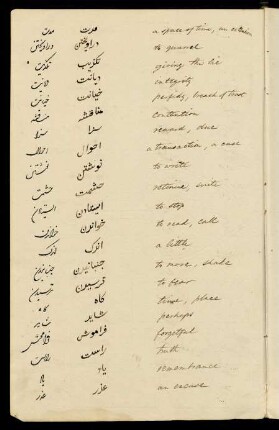 مدت مدت a space of time, an extension
to quarrel
تکذیب تکذیب giving the lie
دیانت دیانت integrity
خیانت خیانت perfidy, breach of trust
مناقشه مناقشه contention
سزا سزا reward, due
احوال احوال a transaction, a case
نوشتن نوشتن to write
حشمت حشمت retinue, suite
ایستادن ایستادن to stop
خواندن خواندن to read, call
اندک اندک a little
جنبانیدن جنبانیدن to move, shake
ترسیدن ترسیدن to fear
گاه گاه time, place
شاید شاید perhaps
فراموش فراموش forgetful
راست راست truth
یاد یاد remembrance
عذر عذر an excuse